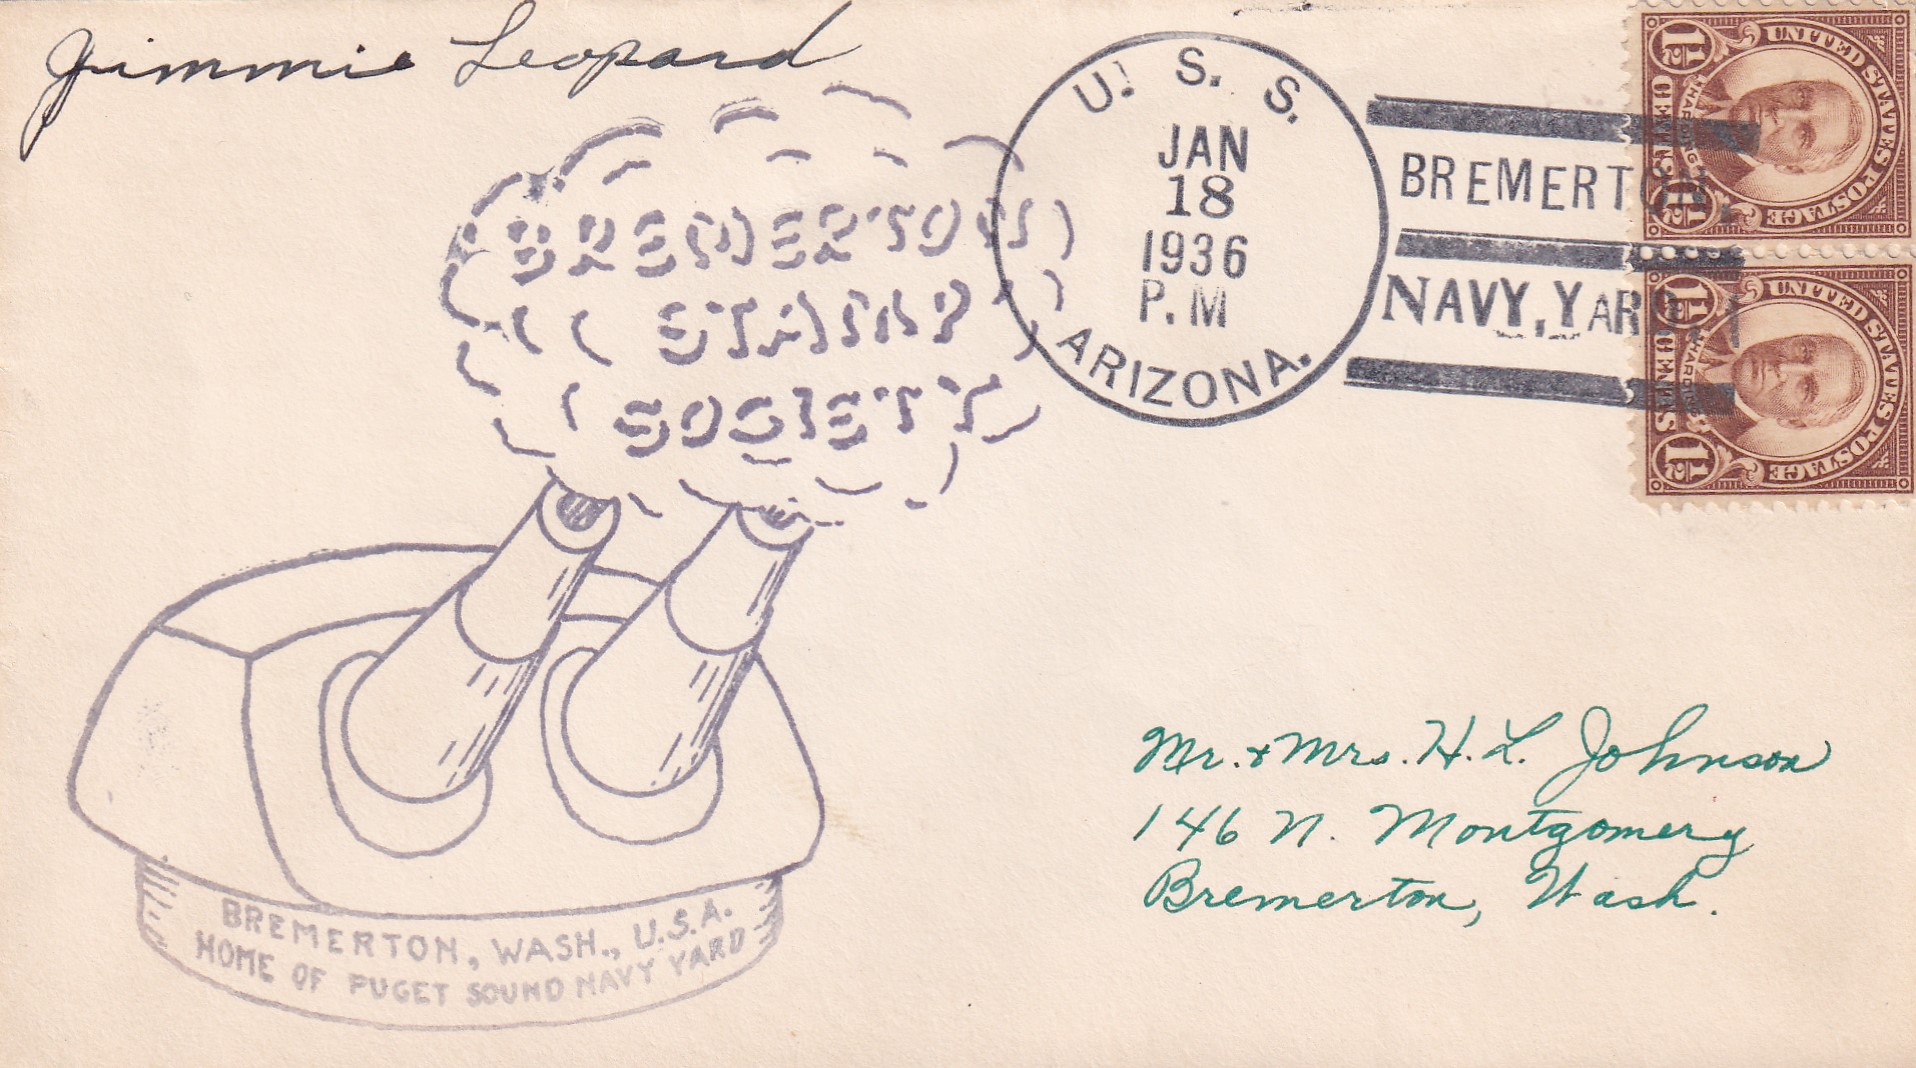 Jimmie Leopard
BREMERTON
STAMP
SOCIETY
BREMERTON, WASH., U.S.A.
HOME OF PUGET SOUND NAVY YARD
U. S. S.
JAN
18
1936
P.M
ARIZONA.
BREMERTON,
NAVY, YARD
UNITED STATES POSTAGE
1½ CENTS 1½
HARDING
UNITED STATES POSTAGE
1½ CENTS 1½
HARDING
Mr. & Mrs. H. L. Johnson
146 N. Montgomery
Bremerton, Wash.